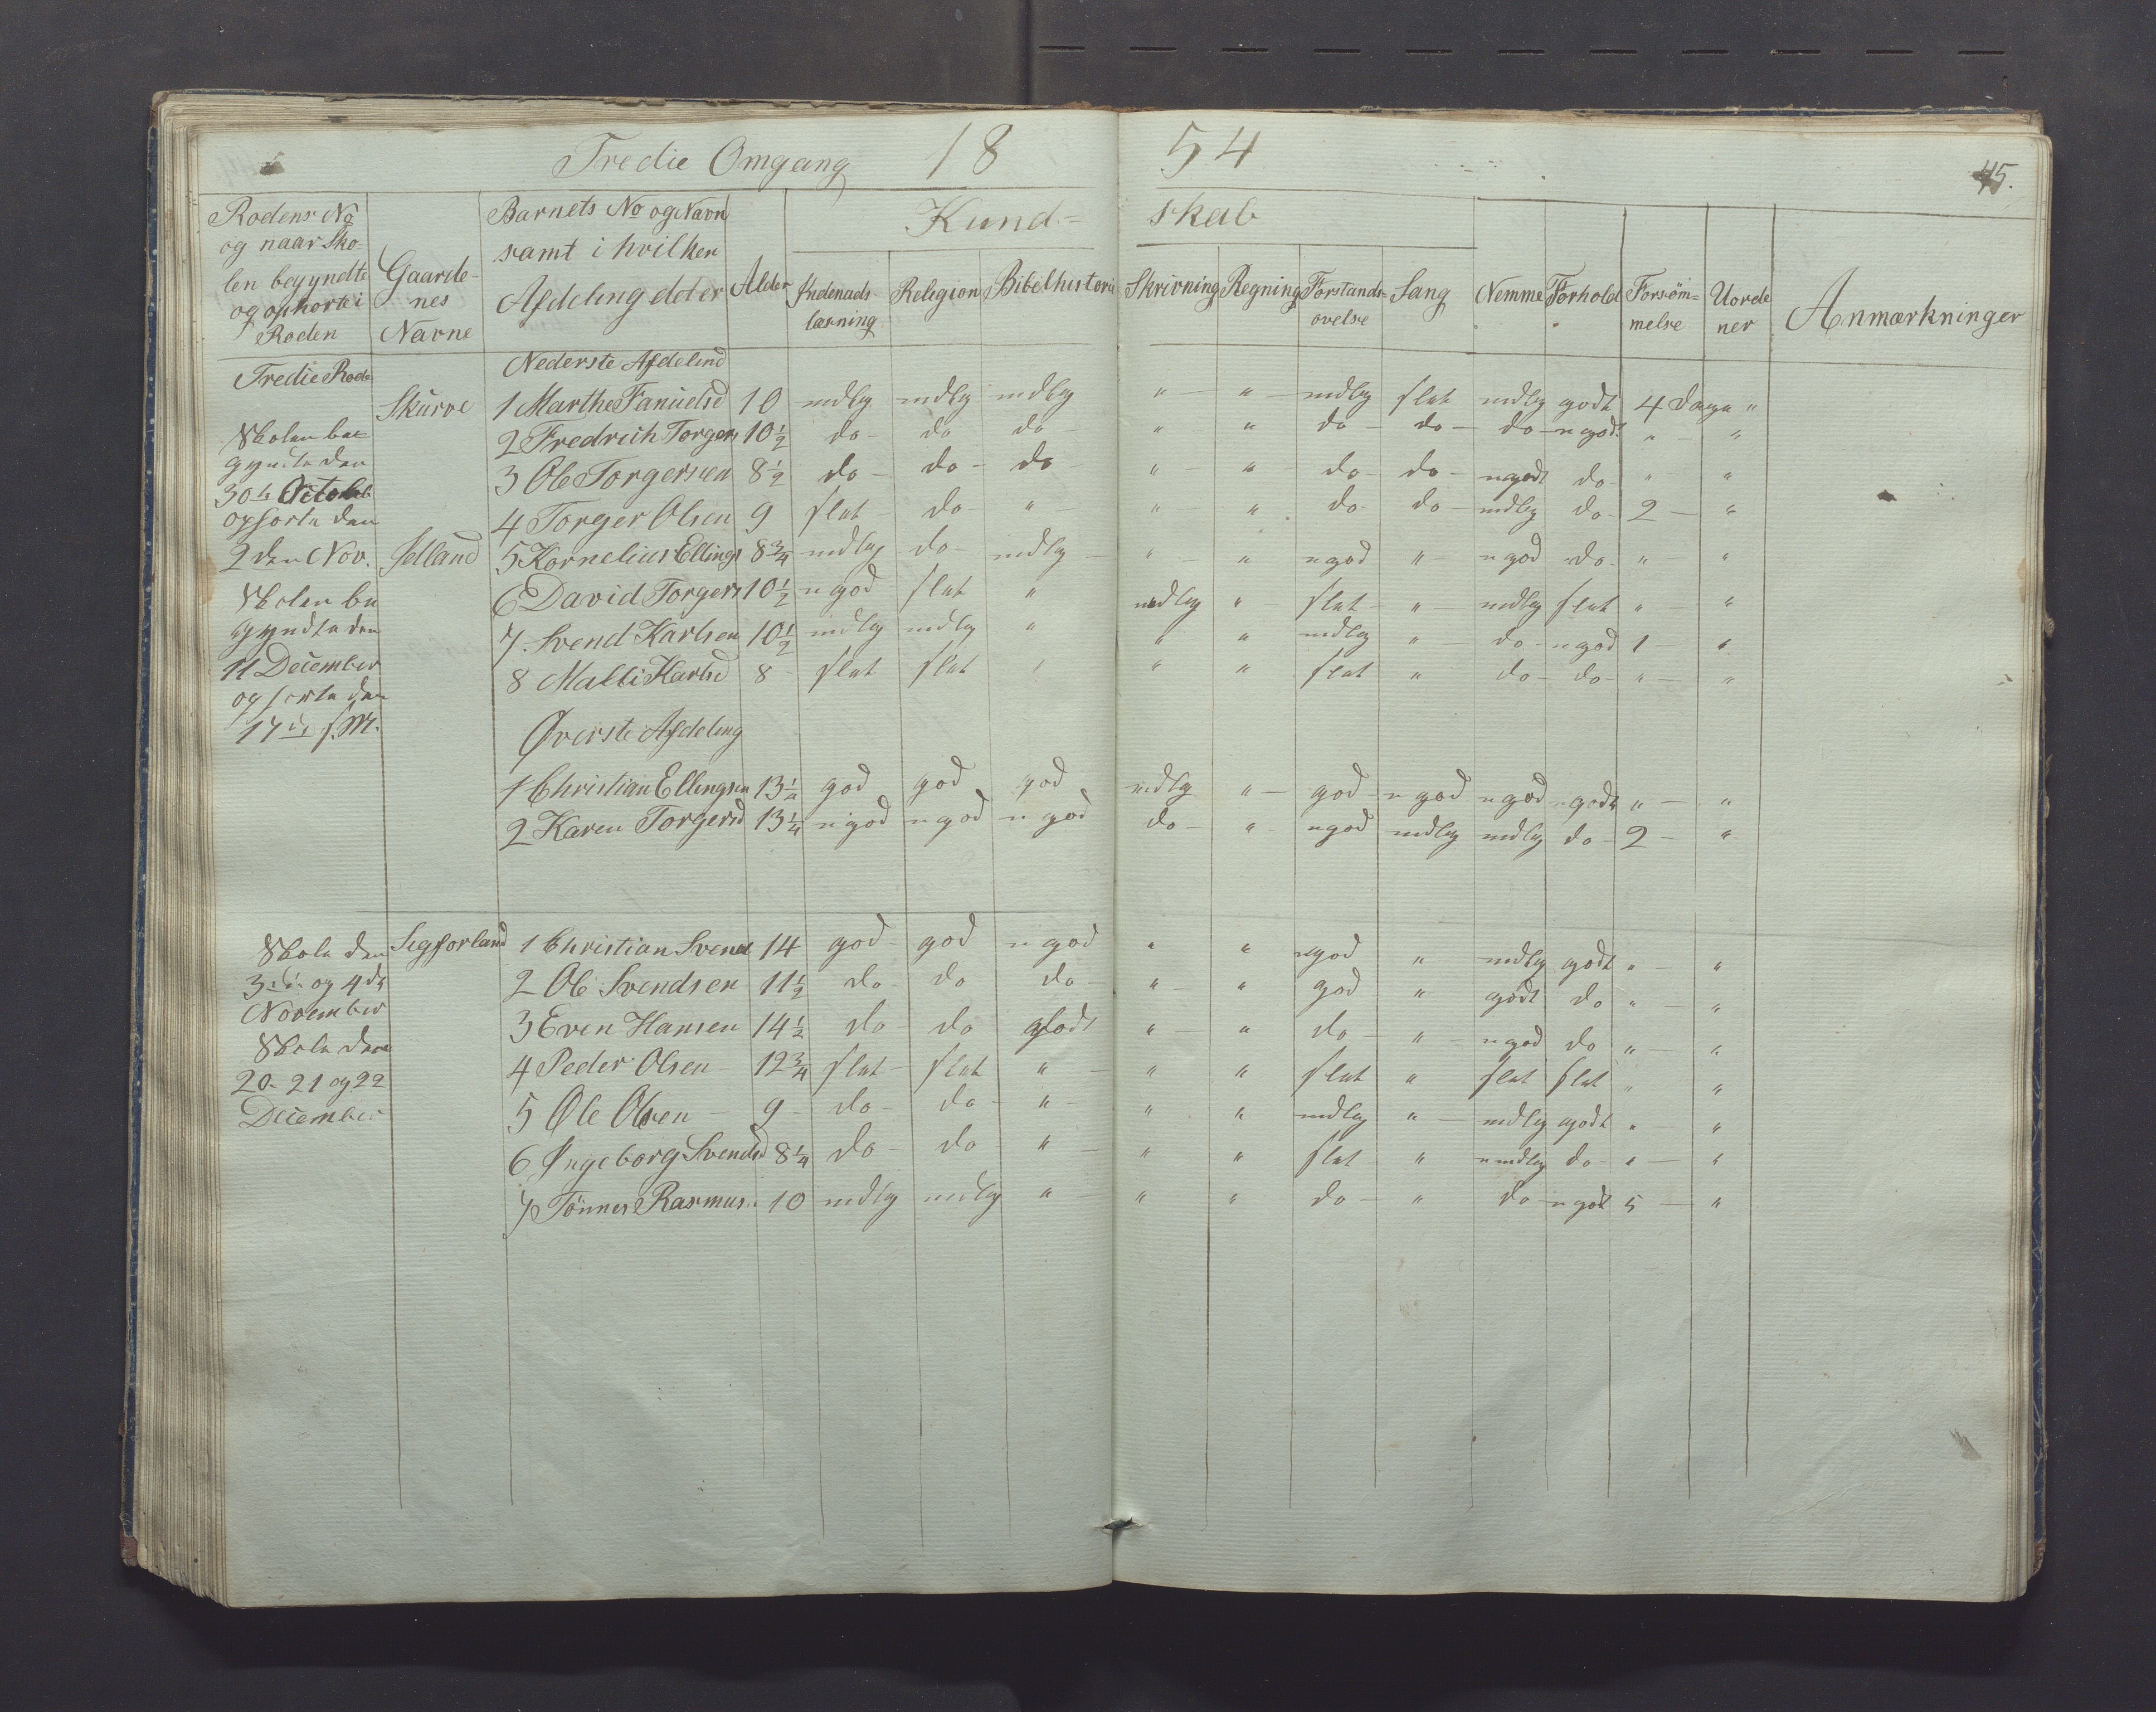 Tredie Omgang 18 54
45.
Rodens No og naar Skolen begyndte og ophorte i Roden
Gaardenes Navne
Barnets No og Navn samt i hvilken Afdeling det er
Alder
Kundskab
Indenads læsning
Religion
Bibelhistorie
Skrivning
Regning
Forstandsøvelse
Sang
Nemme
Forhold
Forsømmelse
Uordener
Anmærkninger
Tredie Rode
Nederste Afdeling
Skurve 1 Marthe Fanuelsd 10 mdlg mdlg mdlg " " mdlg slet mdlg godt 4 Dage "
2 Fredrich Torgers 10 1/2 do do do " " do do do n godt " "
3 Ole Torgersen 8 1/2 do do do " " do do n godt do " "
4 Torger Olsen 9 slet do " " " do do mdlg do 2 "
Skolen be
gyndte den
30te October
ophorte den
2den Nov.
Selland 5 Kornelius Ellings 8 3/4 mdlg do mdlg " " n god " n god do " "
6 David Torgers 10 1/2 n god slet " mdlg " slet " mdlg slet " "
7. Svend Karlsen 10 1/2 mdlg mdlg " " " mdlg " do n god 1 "
8 Malli Karlsd 8 slet slet " " " slet " do do " "
Skolen be
gyndte den
11 December
ophorte den
17de s. M.
Øverste Afdeling
1 Christian Ellingsen 13 1/2 god god god mdlg " god n god n god n godt " "
2 Karen Torgersd 13 1/4 n god n god n god do " n god mdlg mdlg do 2 "
Segforland 1 Christian Svend 14 god god n god " " n god " mdlg godt " "
2 Ole Svendsen 11 1/2 do do do " " god " godt do " "
3 Even Hansen 14 1/2 do do godt " " do " n god do " "
4 Peder Olsen 12 3/4 slet slet " " " slet " slet slet " "
5 Ole Olsen 9 do do " " " mdlg " mdlg godt " "
6 Ingeborg Svendsd 8 1/4 do do " " " slet " umdlg do " "
7 Tönnes Rasmus. 10 mdlg mdlg " " " do " do n godt 5 "
Skole den
3die og 4de
November
Skole den
20. 21 og 22
December